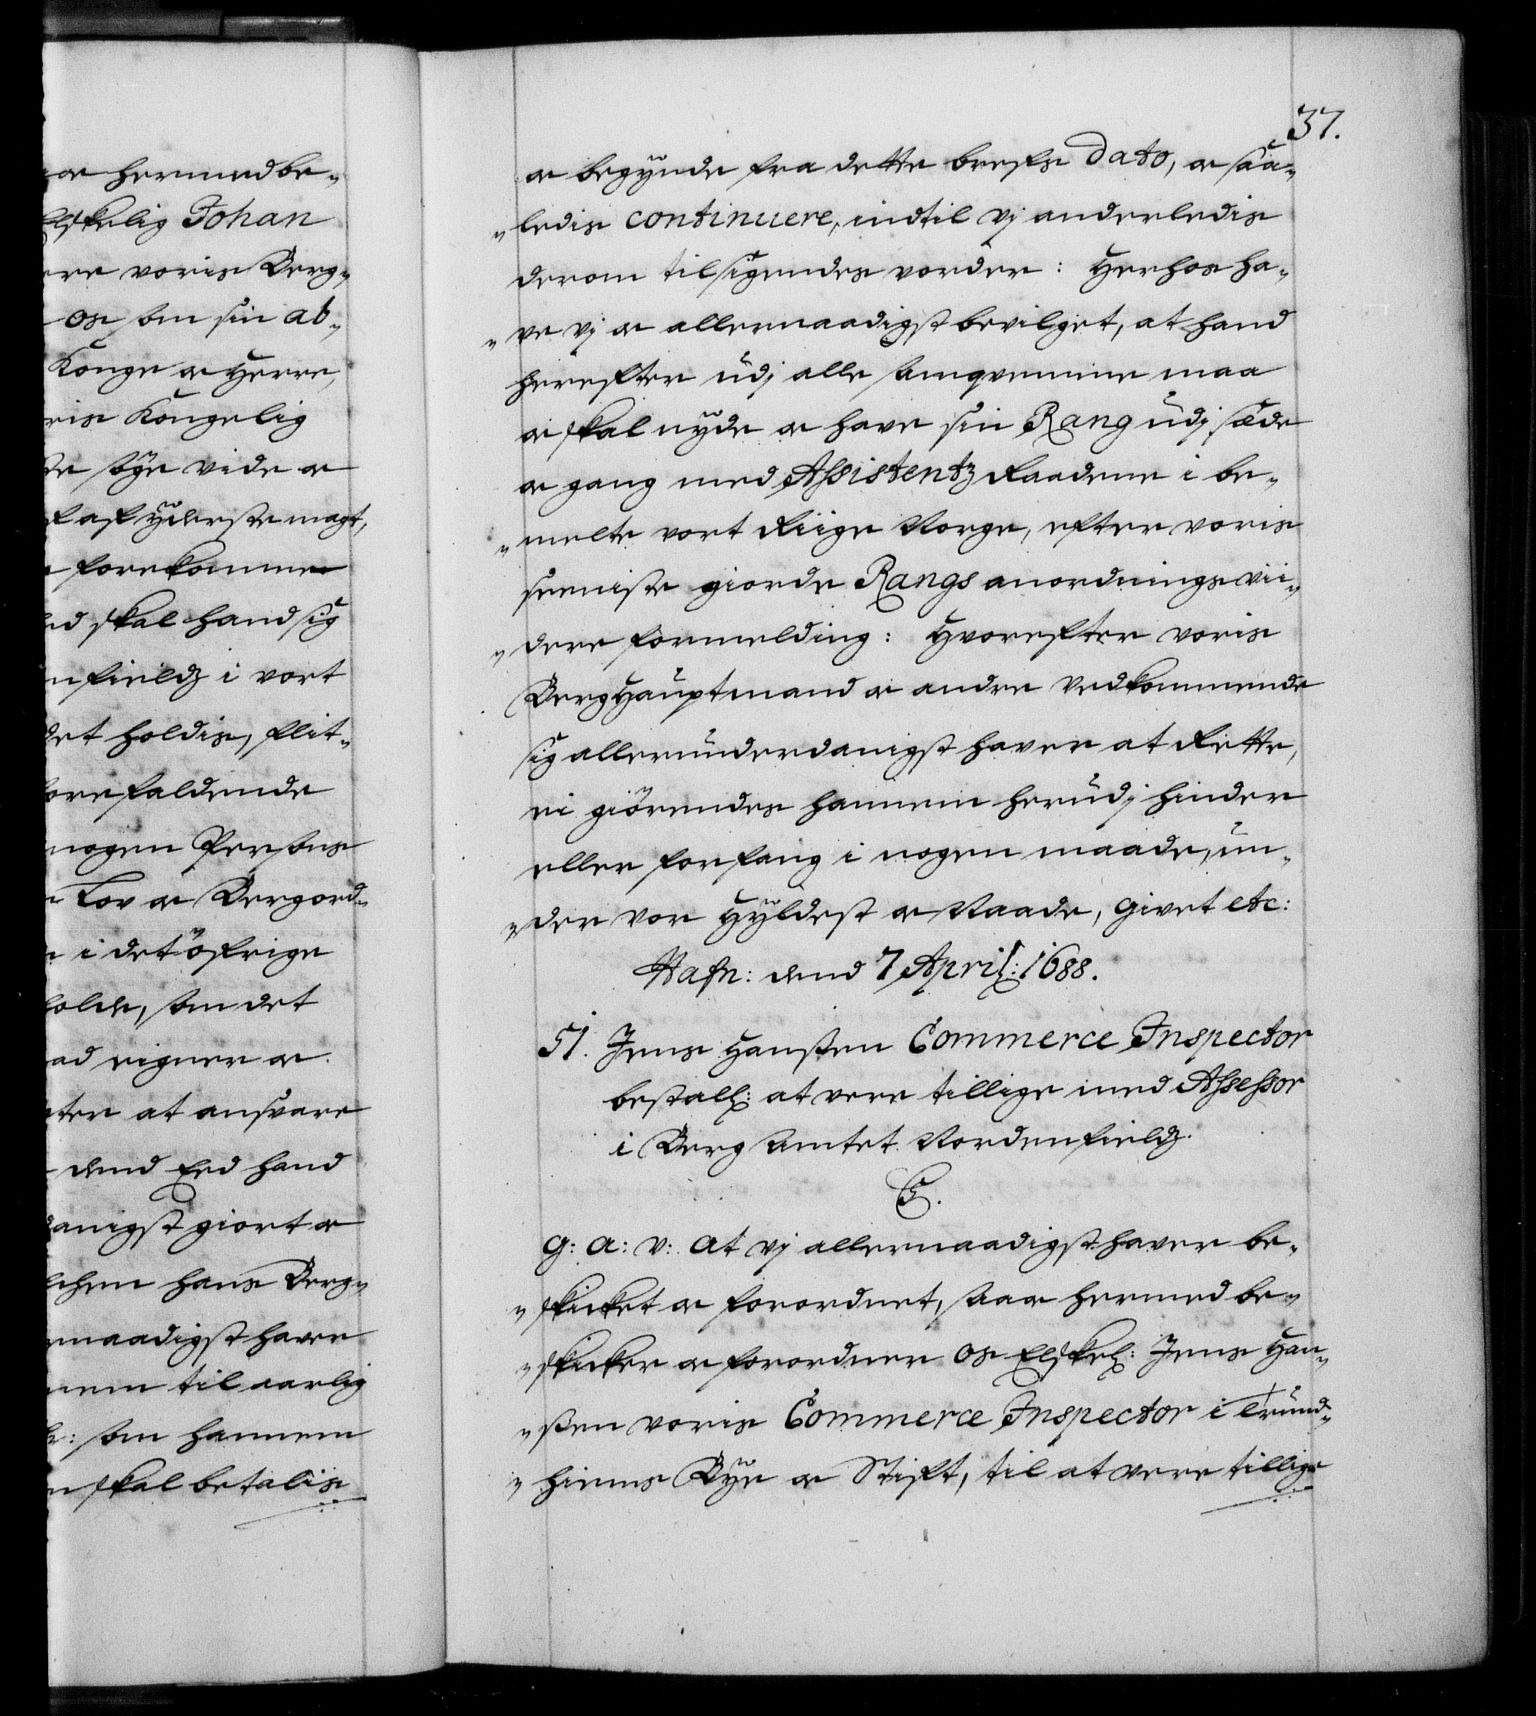 oc hermed be-
Elskelig Johan
ere voris Berg-
os som sin ab-
Konge oc Herre,
ris Kongelig
søge vide oc
af yderste magt,
forekomme
skal hand sig
fieldz i vort
det holdis, flit-
forefaldende
nogen Persons
Lov oc Bergord-
i det øfrige
holde, som det
ad eigner oc
ter at ansvare
dend Eed hand
danigst giort oc
hans Berg-
naadigst have
nem til aarlig
som hannem
skal betalis
37.
oc begynde fra dette brefs Dato, oc saa-
"ledis continuere, indtil vj anderledis
derom tilsigendes vorder: Herhos ha-
"ve vj oc allernaadigst bevilget, at hand
herefter udj alle Sanqvemme maa
oc skal nyde oc have sin Rang udj sæde
oc gang med Assistentz Raadene i be-
"melte vort Riige Norge, efter voris
seeniste giorde Rangs anordnings vii-
"dere formelding: Hvorefter voris
Berghauptmand oc andre Vedkommende
sig allerunderdanigst haver at Rette,
ei giörendes hannem herudj hinder
eller forfang i nogen maade, un-
"der vor Hyldest oc Naade, Givet etc:
Hafn: dend 7 April: 1688.
51. Jens Hanssen Commerce Inspector
bestall: at vere tillige med Assessor
i Berg Amtet Nordenfieldz.
C5.
G: A: V: At vj allernaadigst haver be-
"skicket oc forordnet, saa oc hermed be-
"skicker oc forordner Os Elskel: Jens Han-
"ssen voris Commerce Inspector i Trund-
"hiems Bye oc Stift, til at vere tillige